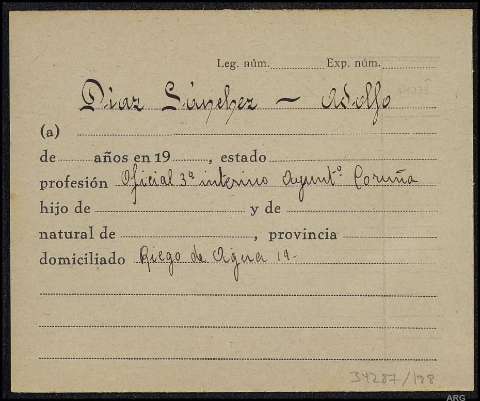 Leg. núm. Exp. núm.
Díaz Sánchez - Adolfo
(a)
de años en 19 , estado
profesión Oficial 3ª interino Ayuntº Coruña
hijo de y de
natural de , provincia
domiciliado Riego de Agua 19-
34287/198
ARG